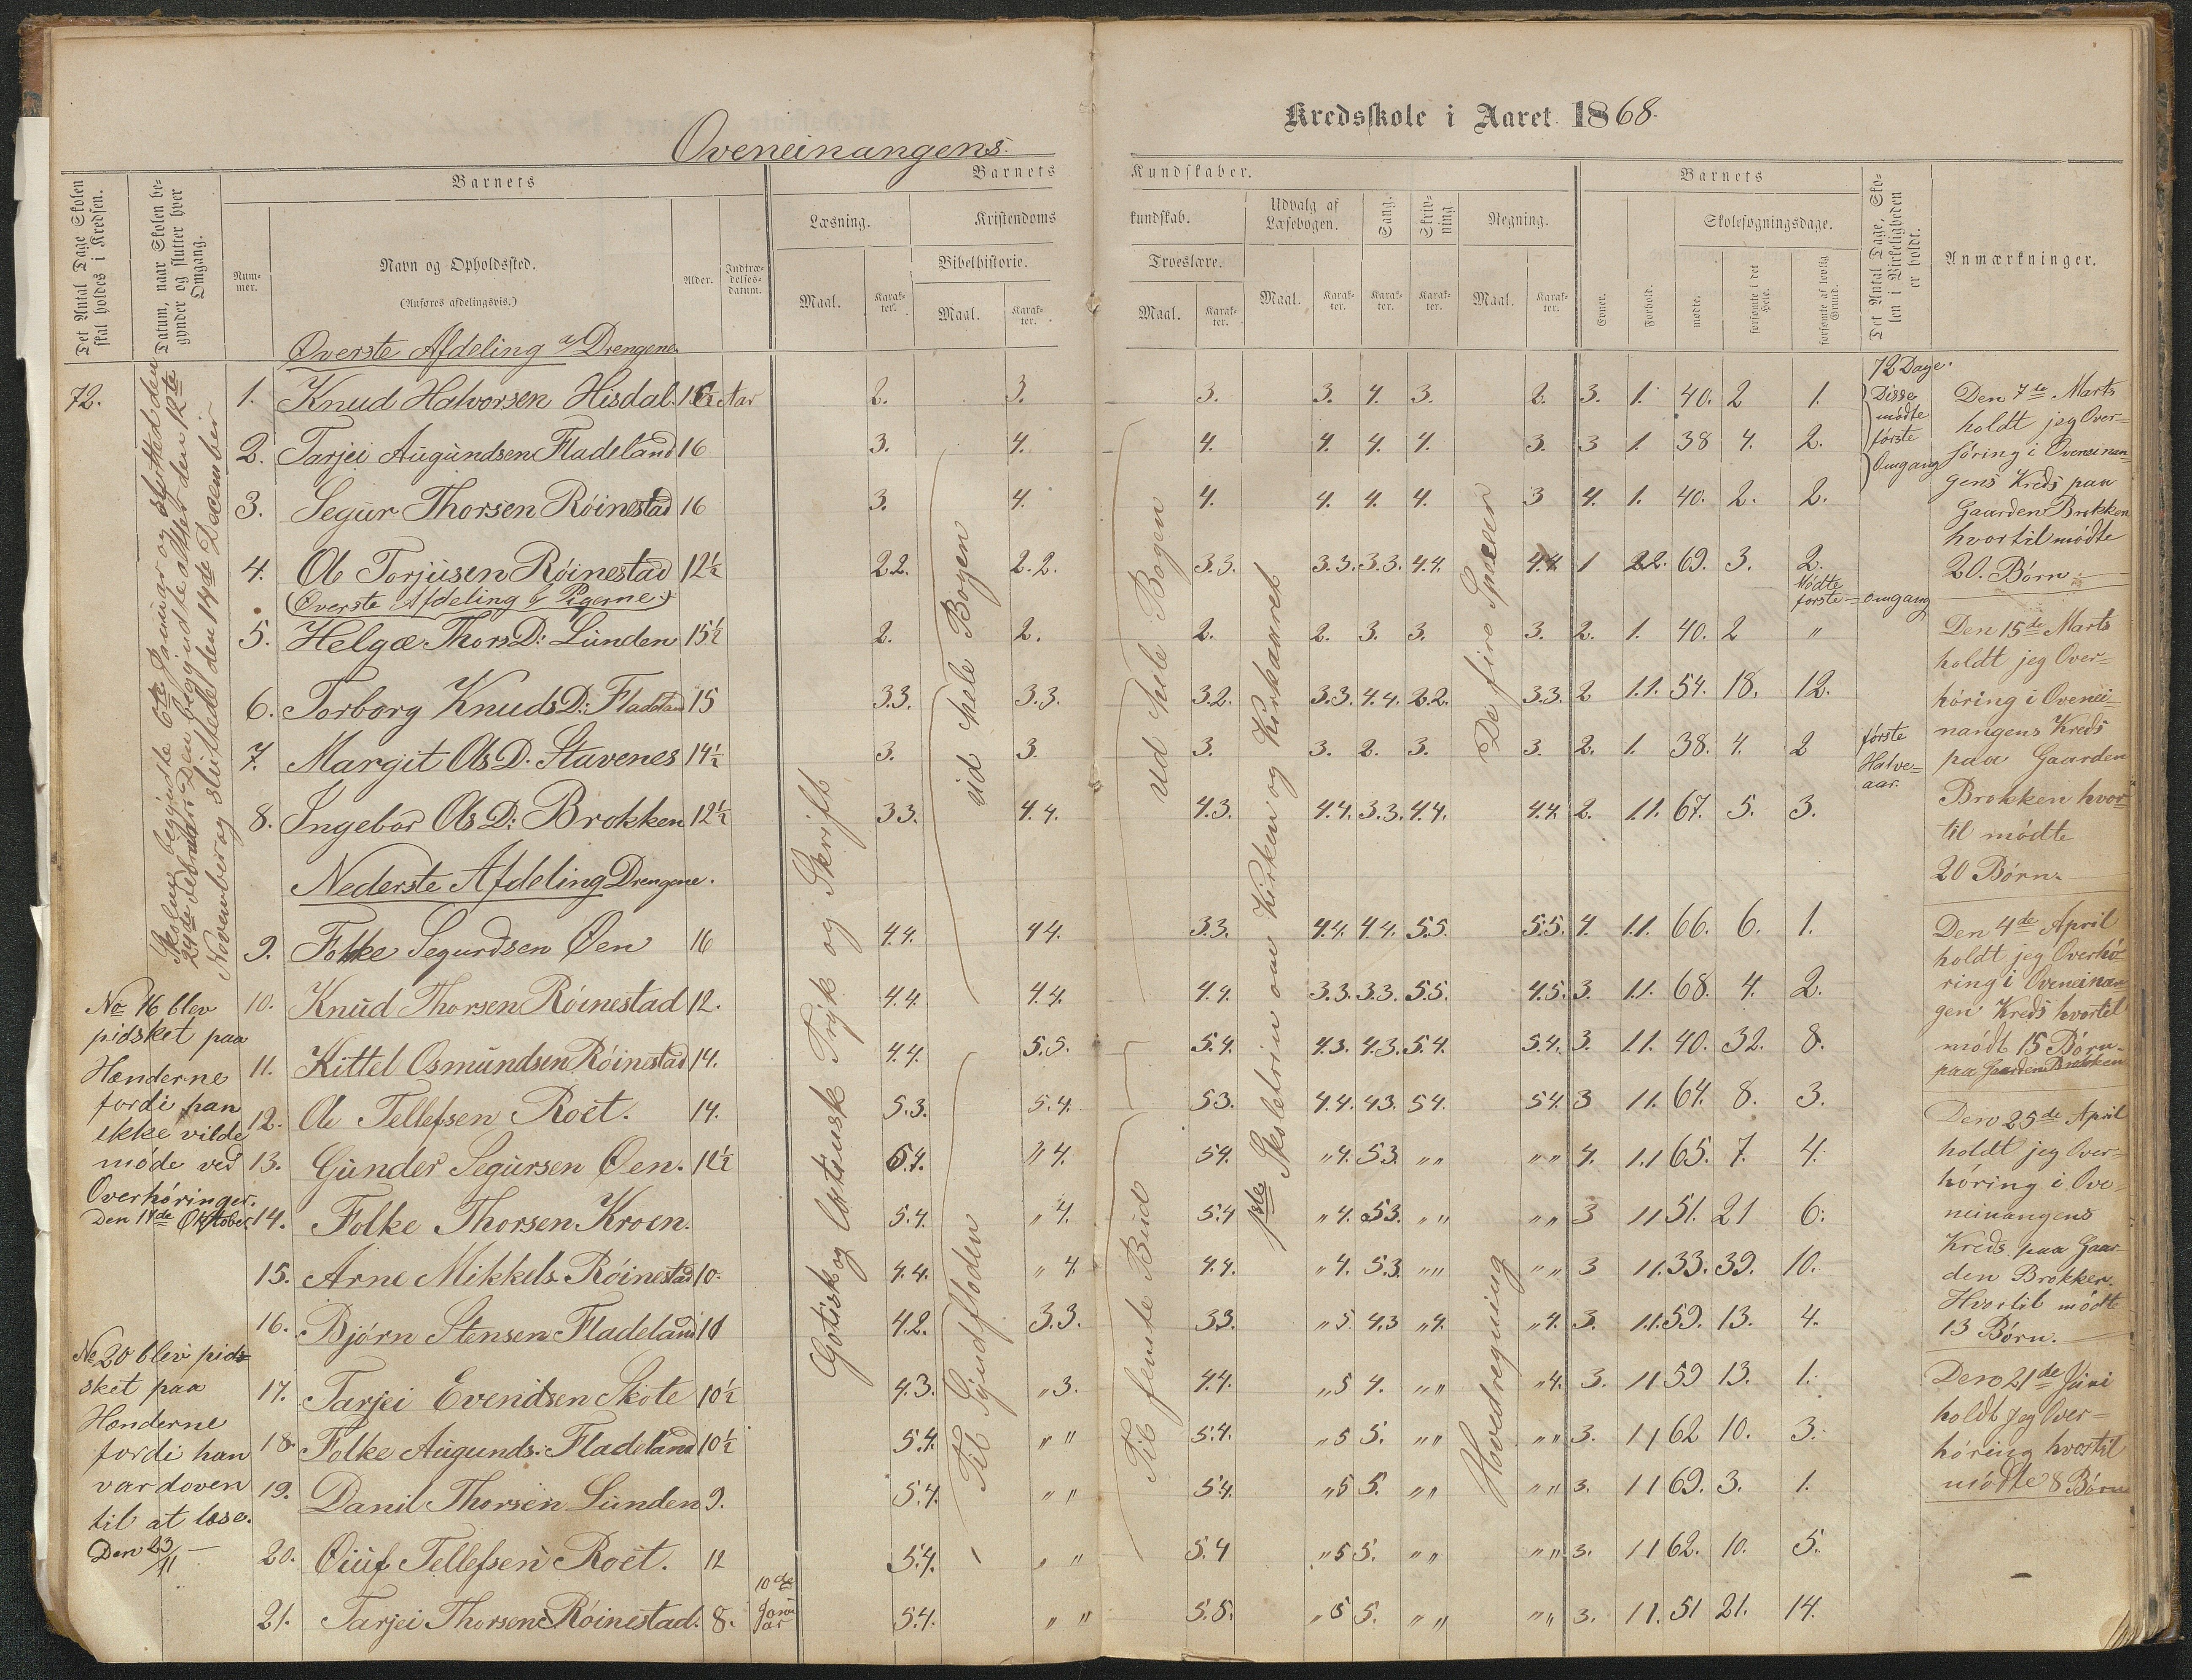 Oveneinangens
Kredsskole i Aaret 1868.
Det Antal Dage Skolen skal holdes i Kredsen.
Datum, naar Skolen begynder og slutter hver Omgang.
Barnets
Nummer.
Navn og Opholdssted.
(Anføres afdelingsvis.)
Alder.
Indtrædelsesdatum.
Barnets Kundskaber.
Læsning.
Maal.
Karakter.
Kristendomskundskab.
Bibelhistorie.
Maal.
Karakter.
Troeslære.
Maal.
Karakter.
Udvalg af Læsebogen.
Maal.
Karakter.
Sang.
Karakter.
Skrivning
Karakter.
Regning.
Maal.
Karakter.
Barnets
Evner.
Forhold.
Skolesøgningsdage.
mødte.
forsømte i det Hele.
forsømte af lovlig Grund.
Det Antal Dage, Skolen i Virkeligheden er holdt.
Anmærkninger.
72.
Skolen begyndte 6te Januar og sluttede den
24de Februar. Den begyndte atter den 12te
November og sluttede den 14de December
Øverste Afdeling a/ Drengene.
1. Knud Halvorsen Hisdal. 16½ Aar 2. 3. 3. 3. 4. 3. 2. 3. 1. 40. 2 1.
2. Tarjei Augundsen Fladeland 16 3. 4. 4. 4. 4. 4. 3. 3 1. 38 4. 2.
3. Segur Thorsen Röinestad 16 3. 4. 4. 4. 4. 4. 3 4. 1. 40. 2. 2.
4. Ole Torjusen Röinestad 12½ 2.2. 2.2. 3.3. 3.3. 3.3. 4.4. 4.4. 1 2.2. 69. 3. 2.
(Øverste Afdeling b Pigerne.)
5. Helgæ Thors D: Lunden 15½ 2. 2. 2. 2. 3. 3. 3. 2. 1. 40. 2 "
6. Torborg Knuds D: Fladeland 15 3.3. 3.3. 3.2. 3.3. 4.4. 2.2. 3.3. 2 1.1. 54. 18. 12.
7. Margit Ols D. Stavenes 14½ 3. 3. 3. 3. 2. 3. 3. 2. 1. 38. 4. 2
8. Ingebor Ols D: Brokken 12½ 3.3. 4.4. 4.3. 4.4. 3.3. 4.4. 4.4. 2. 1.1. 67. 5. 3.
Nederste Afdeling Drengene.
9. Folke Segurdsen Øen 16 4.4. 4.4. 3.3. 4.4. 4.4. 5.5. 5.5. 4. 1.1. 66. 6. 1.
10. Knud Thorsen Röinestad 12. 4.4. 4.4. 4.4. 3.3. 3.3. 5.5. 4.5. 3. 1.1. 68. 4. 2.
11. Kittel Osmundsen Röinestad 14. 4.4. 5.5. 5.4. 4.3. 4.3. 5.4. 5.4. 3. 1.1. 40. 32. 8.
12. Ole Tellefsen Roët. 14. 5.3. 5.4. 5.3. 4.4. 4.3. 5.4. 5.4. 3 1.1. 64. 8. 3.
13. Gunder Segursen Øen. 12½ 5.4. " 4. 5.4. " 4. 5.3. " " " " 4. 1.1 65. 7. 4.
14. Folke Thorsen Kroen. 5.4. " 4. 5.4 " 4. 5.3. " " " " 3 1 1 51. 21 6.
15. Arne Mikkels. Röinestad 10. 4.4. " 4. 4.4. " 4. 5.3. " " " " 3 1 1. 33. 39. 10.
16. Bjørn Stensen Fladeland 10 4.2. 3.3. 3.3. " 5 4.3 " 4. " 4. 3. 1.1. 59. 13. 4.
17. Tarjei Evendsen Skote 10½ 4.3. " 3. 4.4. " 5 4. " " " 4. 3. 1 1 59 13. 1.
18. Folke Augunds: Fladeland 10½ 5.4. " " 5.4. " 5 5. " " " " 3. 1 1 62 10. 3.
19. Danil Thorsen Lunden 9. 5.4. " " 5.4. " 5 5. " " " " 3. 1 1 69. 3. 1.
20. Oiuf Tellefsen Roët. 12 5.4. " " 5.4 " 5 5. " " " " 3. 1 1 62. 10. 5.
21. Tarjei Thorsen Röinestad. 8. 10de Januar 5.4. " " 5.5. " 5 5. " " " " 3. 1 1. 51 21. 14.
Gotisk og Latinsk Tryk og Skrift
ud hele Bogen
Til Syndfloden
ud hele Bogen
Til femte Bud
1ste Skoletrin om Kirken og Kirkeaaret
De fire Specier
Hovedregning
No 16 blev
pidsket paa
Hænderne
fordi han
ikke vilde
møde ved
Overhöringer.
Den 14de Oktober
No 20 blev pid-
sket paa
Hænderne
fordi han
var doven
til at læse.
Den 23/11
72 Dage.
Disse
mødte
første
Omgang
Mödte
förste Omgang
første
Halve-
aar.
Den 7de Marts
holdt jeg Over-
höring i Oveneinan-
gens Kreds paa
Gaarden Brokken
hvortil mødte
20. Børn.
Den 15de Marts
holdt jeg Over-
höring i Ovenei-
nangens Kreds
paa Gaarden
Brokken hvor-
til mödte
20 Børn.
Den 4de April
holdt jeg Overhö-
ring i Oveneinan-
gen Kreds hvortil
mödt 15 Børn.
paa Gaarden Brokken
Den 25de April
holdt jeg Over-
höring i Ove-
neinangens
Kreds paa Gaar-
den Brokken.
Hvortil mödte
13 Børn.
Den 21de Juni
holdt jeg Over-
höring hvortil
mödte 8 Børn